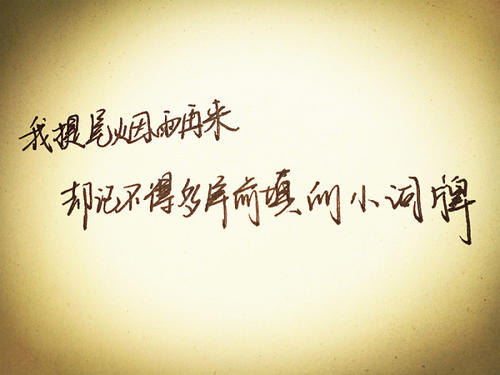 我提尾烟雨再来
却记不得多年前填的小词牌